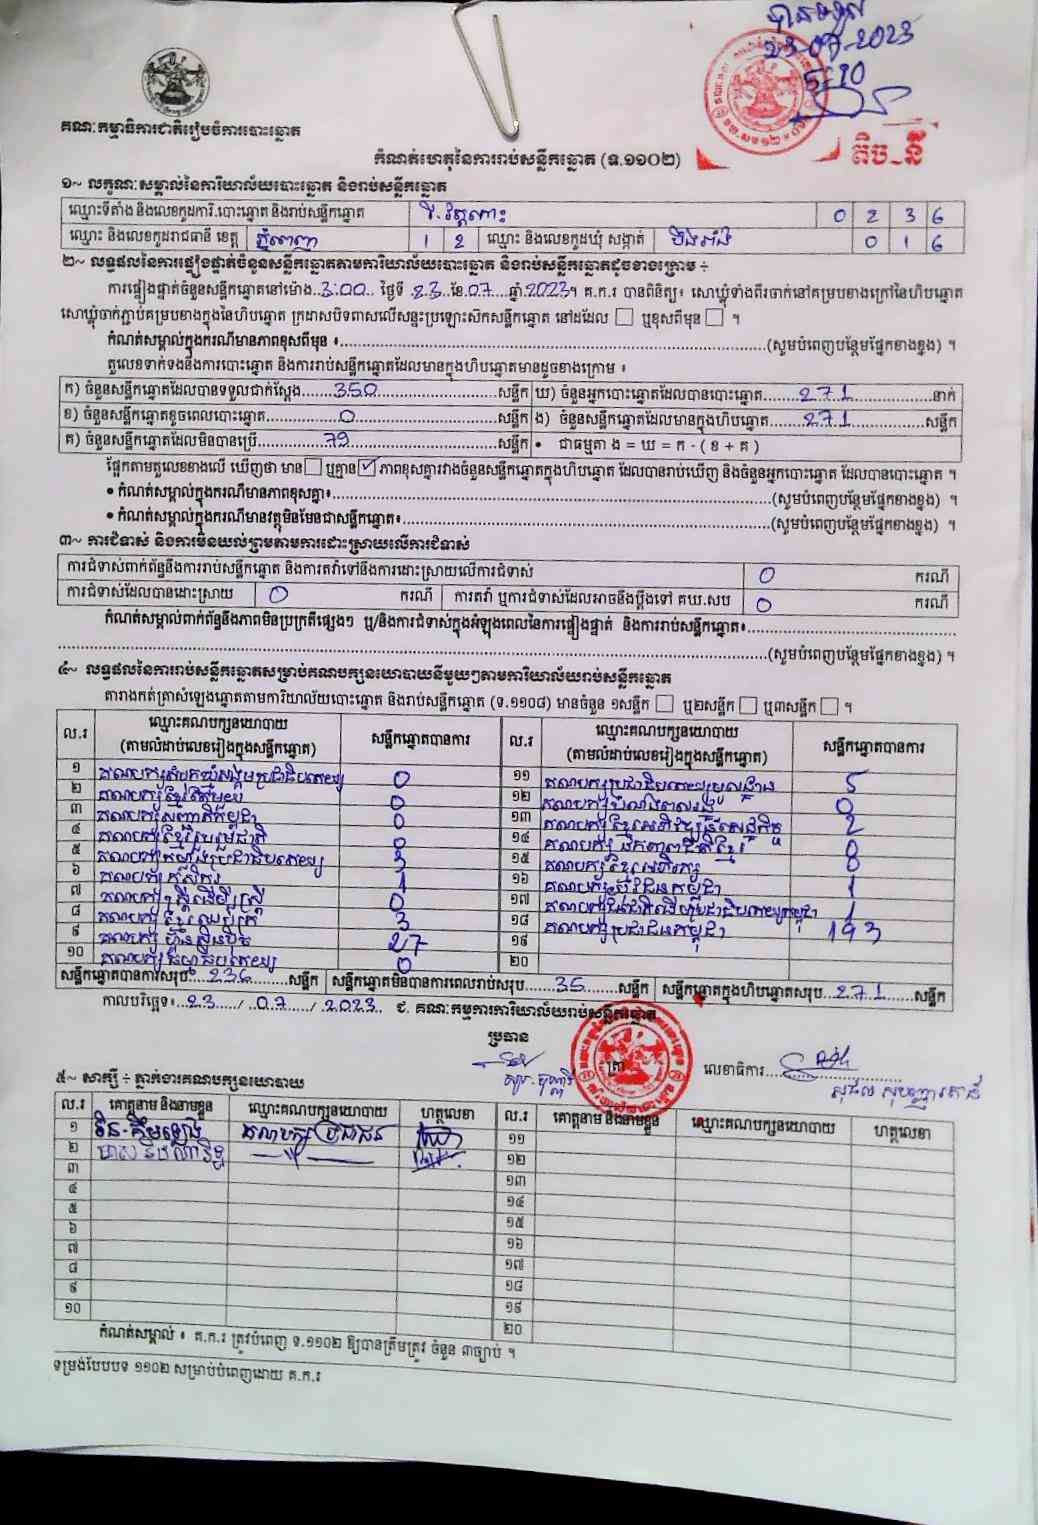 បានទទួល
23-07-2023
5:10
គណៈកម្មាធិការជាតិរៀបចំការបោះឆ្នោត
កំណត់ហេតុនៃការរាប់សន្លឹកឆ្នោត (ទ.១១០២)
តិច_នី
១~ លក្ខណៈសម្គាល់នៃការិយាល័យបោះឆ្នោត និងរាប់សន្លឹកឆ្នោត
ឈ្មោះទីតាំង និងលេខកូដការិ.បោះឆ្នោត និងរាប់សន្លឹកឆ្នោត 0 2 3 6
ឈ្មោះ និងលេខកូដរាជធានី ខេត្ត ភ្នំពេញ 1 2 ឈ្មោះ និងលេខកូដឃុំ សង្កាត់ 0 1 6
២~ លទ្ធផលនៃការផ្ទៀងផ្ទាត់ចំនួនសន្លឹកឆ្នោតតាមការិយាល័យបោះឆ្នោត និងរាប់សន្លឹកឆ្នោតដូចខាងក្រោម ÷
ការផ្ទៀងផ្ទាត់ចំនួនសន្លឹកឆ្នោតនៅម៉ោង..3:00.. ថ្ងៃទី 23.ខែ.07...ឆ្នាំ.2023។ គ.ក.រ បានពិនិត្យ៖ សោឃ្លុំទាំងពីរចាក់នៅគម្របខាងក្រៅនៃហិបឆ្នោត
សោឃ្លុំចាក់ភ្ជាប់គម្របខាងក្នុងនៃហិបឆ្នោត ក្រដាសបិទពាសលើសន្ទះប្រឡោះសិកសន្លឹកឆ្នោត នៅដដែល ☐ ឬខុសពីមុន ☐ ។
កំណត់សម្គាល់ក្នុងករណីមានភាពខុសពីមុន ៖..........(សូមបំពេញបន្ថែមផ្នែកខាងខ្នង) ។
តួលេខទាក់ទងនឹងការបោះឆ្នោត និងការរាប់សន្លឹកឆ្នោតដែលមានក្នុងហិបឆ្នោតមានដូចខាងក្រោម ៖
ក) ចំនួនសន្លឹកឆ្នោតដែលបានទទួលជាក់ស្តែង.......350..........សន្លឹក ឃ) ចំនួនអ្នកបោះឆ្នោតដែលបានបោះឆ្នោត.......271..........នាក់
ខ) ចំនួនសន្លឹកឆ្នោតខូចពេលបោះឆ្នោត.......0..........សន្លឹក ង) ចំនួនសន្លឹកឆ្នោតដែលមានក្នុងហិបឆ្នោត.......271..........សន្លឹក
គ) ចំនួនសន្លឹកឆ្នោតដែលមិនបានប្រើ.......79..........សន្លឹក • ជាធម្មតា ង = ឃ = ក - ( ខ + គ )
ផ្អែកតាមតួលេខខាងលើ ឃើញថា មាន ☐ ឬគ្មាន ☑ ភាពខុសគ្នារវាងចំនួនសន្លឹកឆ្នោតក្នុងហិបឆ្នោត ដែលបានរាប់ឃើញ និងចំនួនអ្នកបោះឆ្នោត ដែលបានបោះឆ្នោត ។
• កំណត់សម្គាល់ក្នុងករណីមានភាពខុសគ្នា៖..........(សូមបំពេញបន្ថែមផ្នែកខាងខ្នង) ។
• កំណត់សម្គាល់ក្នុងករណីមានវត្ថុមិនមែនជាសន្លឹកឆ្នោត៖..........(សូមបំពេញបន្ថែមផ្នែកខាងខ្នង) ។
៣~ ការជំទាស់ និងការមិនយល់ព្រមតាមការដោះស្រាយលើការជំទាស់
ការជំទាស់ពាក់ព័ន្ធនឹងការរាប់សន្លឹកឆ្នោត និងការតវ៉ាទៅនឹងការដោះស្រាយលើការជំទាស់ 0 ករណី
ការជំទាស់ដែលបានដោះស្រាយ 0 ករណី ការតវ៉ា ឬការជំទាស់ដែលអាចនឹងប្តឹងទៅ គឃ.សប 0 ករណី
កំណត់សម្គាល់ពាក់ព័ន្ធនឹងភាពមិនប្រក្រតីផ្សេងៗ ឬ/និងការជំទាស់ក្នុងអំឡុងពេលនៃការផ្ទៀងផ្ទាត់ និងការរាប់សន្លឹកឆ្នោត៖..........
..........(សូមបំពេញបន្ថែមផ្នែកខាងខ្នង) ។
៤~ លទ្ធផលនៃការរាប់សន្លឹកឆ្នោតសម្រាប់គណបក្សនយោបាយនីមួយៗតាមការិយាល័យរាប់សន្លឹកឆ្នោត
តារាងកត់ត្រាសំឡេងឆ្នោតតាមការិយាល័យបោះឆ្នោត និងរាប់សន្លឹកឆ្នោត (ទ.១១០៨) មានចំនួន ១សន្លឹក ☐ ឬ២សន្លឹក ☐ ឬ៣សន្លឹក ☐ ។
ល.រ ឈ្មោះគណបក្សនយោបាយ (តាមលំដាប់លេខរៀងក្នុងសន្លឹកឆ្នោត) សន្លឹកឆ្នោតបានការ ល.រ ឈ្មោះគណបក្សនយោបាយ (តាមលំដាប់លេខរៀងក្នុងសន្លឹកឆ្នោត) សន្លឹកឆ្នោតបានការ
១ គណបក្សសំបុកឃ្មុំសង្គមប្រជាធិបតេយ្យ 0 ១១ គណបក្សប្រជាធិបតេយ្យមូលដ្ឋាន 5
២ គណបក្សខ្មែរតែមួយ 0 ១២ 0
៣ គណបក្សសញ្ជាតិកម្ពុជា 0 ១៣ គណបក្សខ្មែរអភិវឌ្ឍន៍សេដ្ឋកិច្ច 2
៤ គណបក្សខ្មែររួបរួមជាតិ ១៤ គណបក្សឯកភាពជាតិខ្មែរ 0
៥ គណបក្សកម្លាំងប្រជាធិបតេយ្យ 3 ១៥ គណបក្សខ្មែរអភិរក្ស 8
៦ គណបក្សកសិករ 1 ១៦ គណបក្សយុវជនកម្ពុជា 1
៧ គណបក្សស្ត្រីដើម្បីស្ត្រី 0 ១៧ 1
៨ គណបក្សខ្មែរឈប់ក្រ 3 ១៨ គណបក្សប្រជាជនកម្ពុជា 193
៩ គណបក្សហ៊្វុនស៊ិនប៉ិច 27 ១៩
១០ គណបក្សធម្មាធិបតេយ្យ 0 ២០
សន្លឹកឆ្នោតបានការសរុប...236.......សន្លឹក សន្លឹកឆ្នោតមិនបានការពេលរាប់សរុប.......35.......សន្លឹក សន្លឹកឆ្នោតក្នុងហិបឆ្នោតសរុប..271.......សន្លឹក
កាលបរិច្ឆេទ៖...23..../...07....../ 2023.. ជ. គណៈកម្មការការិយាល័យរាប់សន្លឹកឆ្នោត
ប្រធាន
ត្រា
លេខាធិការ..........
៥~ សាក្សី ÷ ភ្នាក់ងារគណបក្សនយោបាយ
ល.រ គោត្តនាម និងនាមខ្លួន ឈ្មោះគណបក្សនយោបាយ ហត្ថលេខា ល.រ គោត្តនាម និងនាមខ្លួន ឈ្មោះគណបក្សនយោបាយ ហត្ថលេខា
១ គណបក្ស ប្រជាជន ១១
២ —〃— ១២
៣ ១៣
៤ ១៤
៥ ១៥
៦ ១៦
៧ ១៧
៨ ១៨
៩ ១៩
១០ ២០
កំណត់សម្គាល់ ៖ គ.ក.រ ត្រូវបំពេញ ទ.១១០២ ឱ្យបានត្រឹមត្រូវ ចំនួន ៣ច្បាប់ ។
ទម្រង់បែបបទ ១១០២ សម្រាប់បំពេញដោយ គ.ក.រ